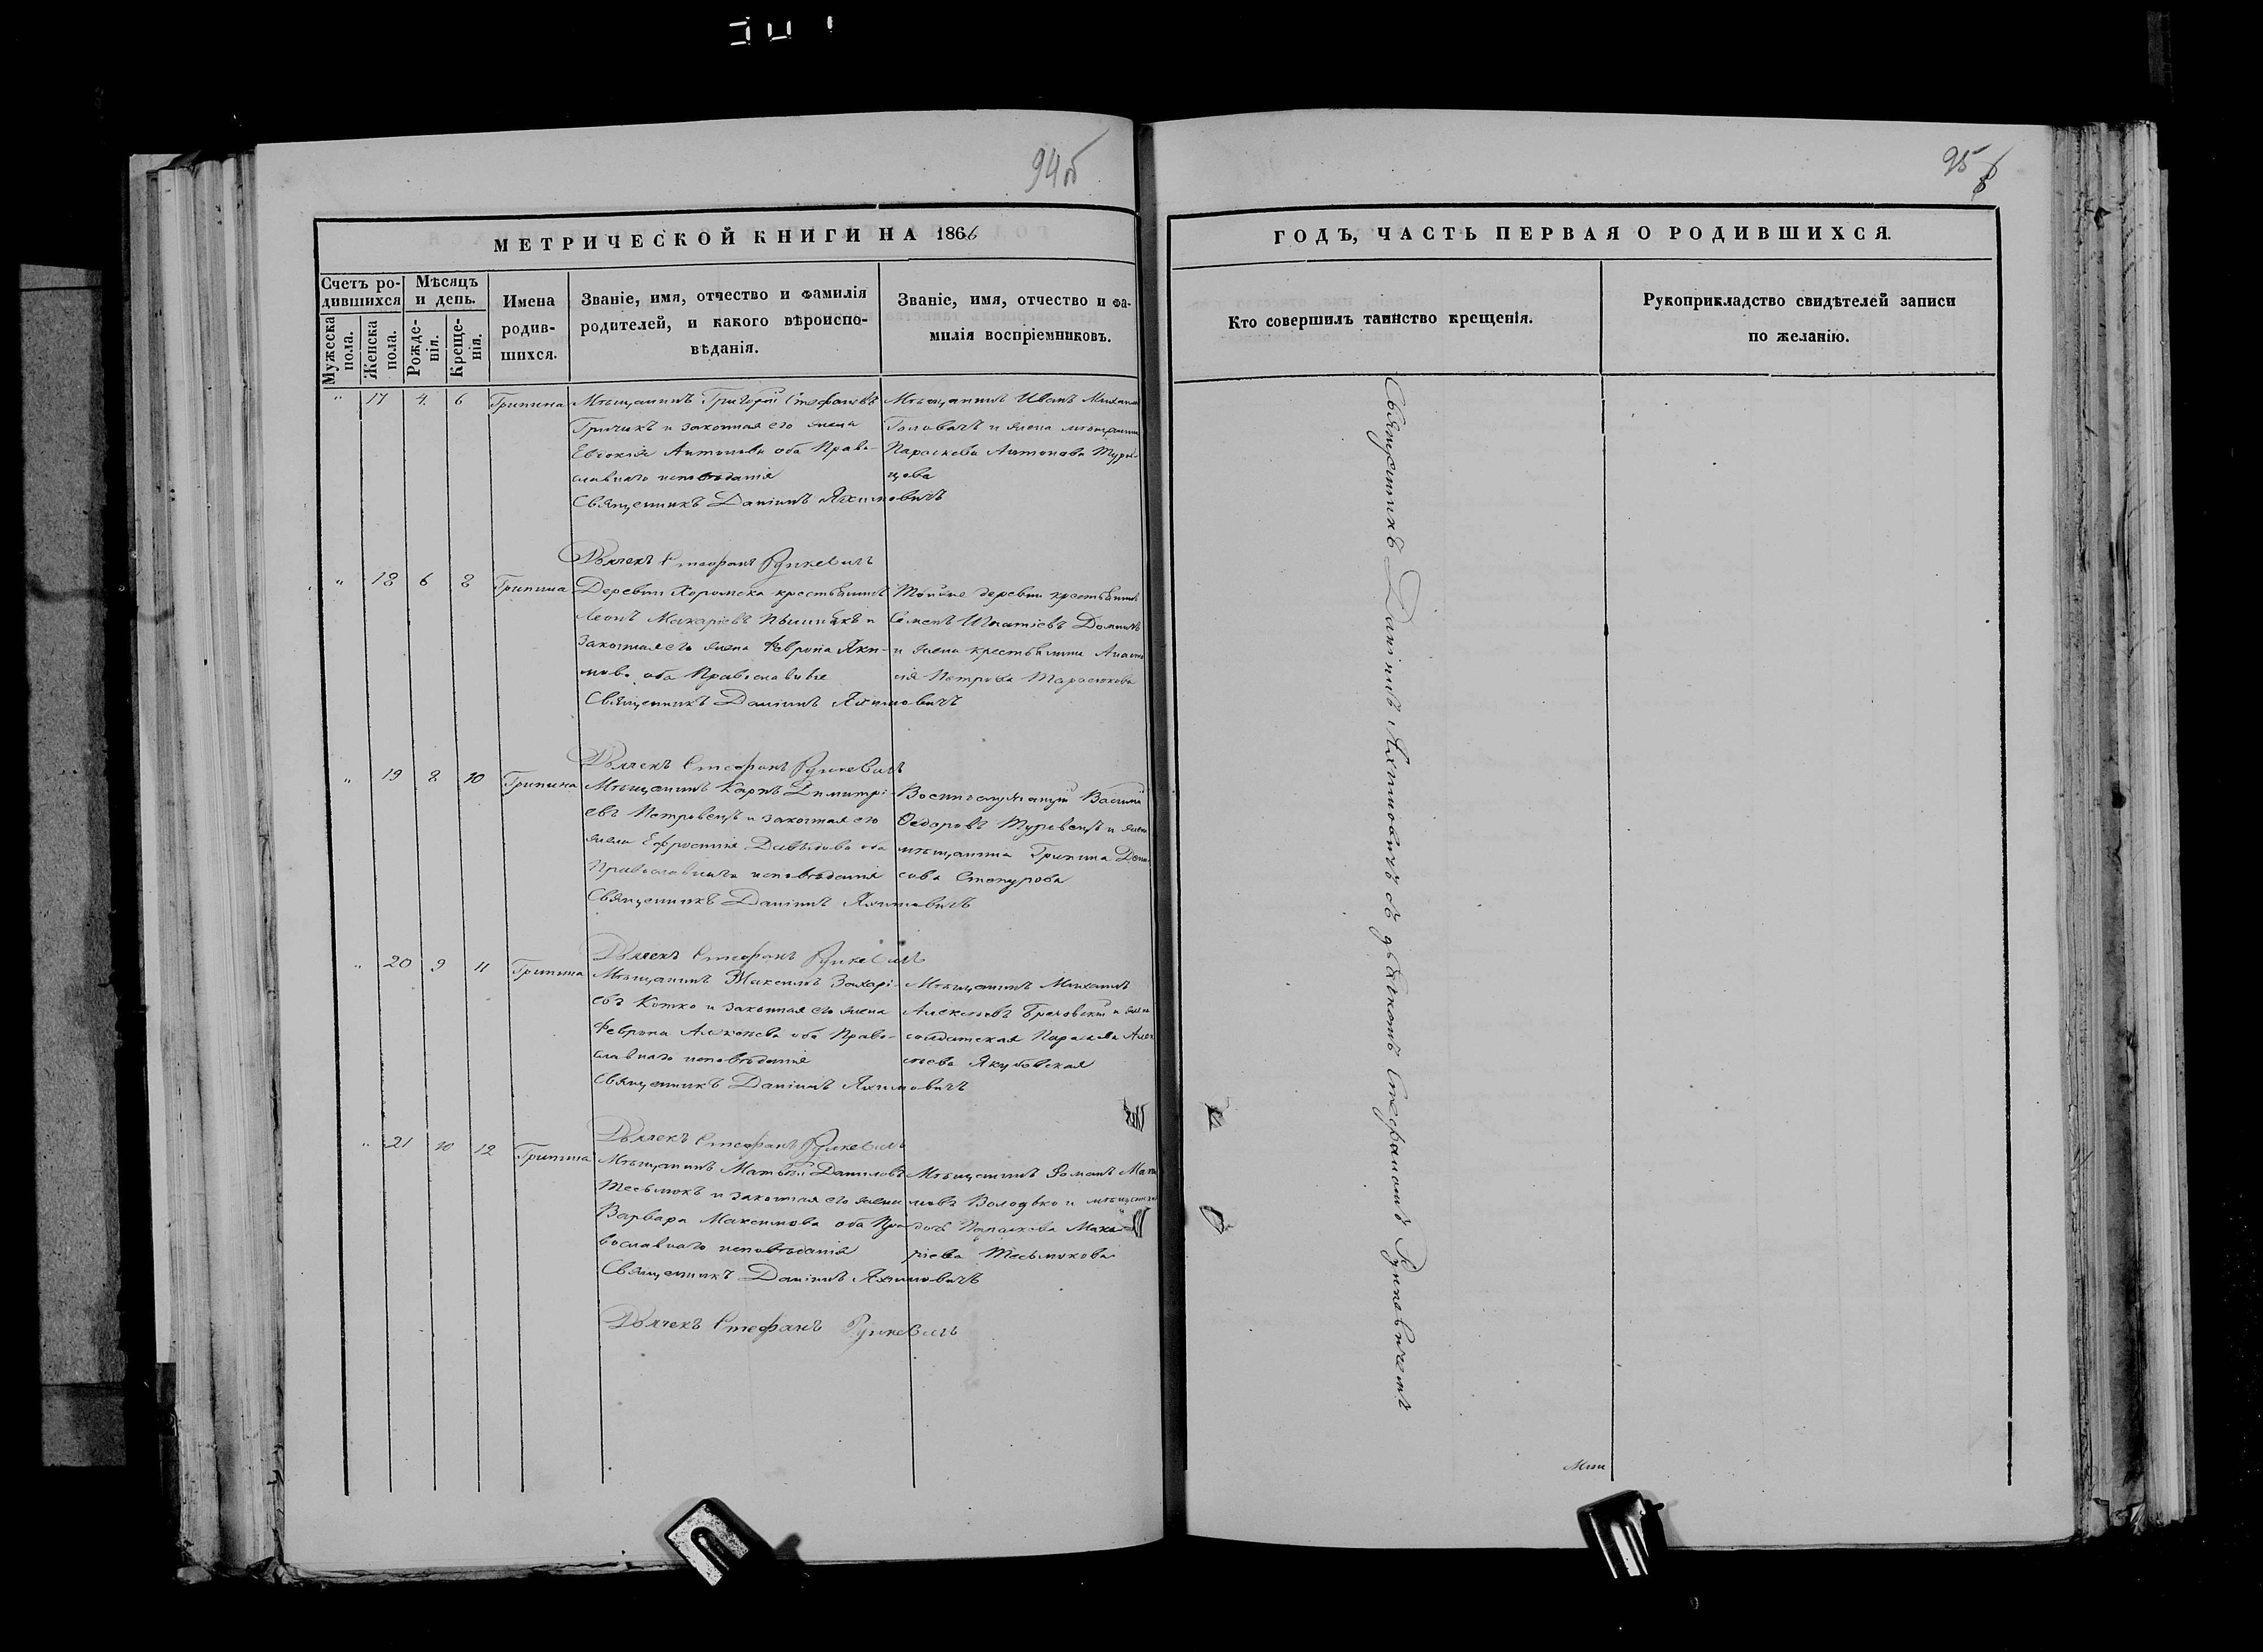 94 об
МЕТРИЧЕСКОЙ КНИГИ НА 1866
Счетъ родившихся
Мужеска пола.
Женска пола.
Мѣсяцъ и день.
Рожденія.
Крещенія.
Имена родившихся.
Званіе, имя, отчество и фамилія
родителей, и какого вѣроиспо-
вѣданія.
Званіе, имя, отчество и фа-
милія воспріемниковъ.
" 17 4 6 Грипина
Мѣщанинъ Григорій Стефановъ
Гричикъ и законная его жена
Евдокія Антонова оба Право-
славнаго исповѣданія
Священникъ Даніилъ Яхимовичъ
Дьячекъ Стефанъ Рункевичъ
Мѣщанинъ Иванъ
Головачъ и жена
Параскева Антонова
" 18 6 8 Грипина
Деревни Хоромска крестьянинъ
Леонъ Макаріевъ и
законная его жена Феврона Яки-
мова оба Православные
Священникъ Даніилъ Яхимовичъ
Дьячекъ Стефанъ Рункевичъ
Тойже деревни крестьянинъ
Семенъ Игнатіевъ
и жена крестьянина
Петрова Тарасюкова
" 19 8 10 Грипина
Мѣщанинъ Карпъ Димитрі-
евъ Петровецъ и законная его
жена Ефросинія Давыдова оба
Православнаго исповѣданія
Священникъ Даніилъ Яхимовичъ
Дьячекъ Стефанъ Рункевичъ
Василій
Ѳедоровъ Туровецъ и жена
мѣщанина Грипина Дени-
сова
" 20 9 11 Грипина
Мѣщанинъ Максимъ Захарі-
евъ Котко и законная его жена
Феврона Алексѣева оба Право-
славнаго исповѣданія
Священникъ Даніилъ Яхимовичъ
Дьячекъ Стефанъ Рункевичъ
Мѣщанинъ Михаилъ
Алексѣевъ и жена
солдатская
Якубовская
" 21 10 12 Грипина
Мѣщанинъ Матѳѣй Даниловъ
Тесьлюкъ и законная его жена
Варвара Максимова оба Пра-
вославнаго исповѣданія
Священникъ Даніилъ Яхимовичъ
Дьячекъ Стефанъ Рункевичъ
Мѣщанинъ Романъ
Володько и
дочь Параскева Мака-
ріева Тесьлюкова
95
ГОДЪ, ЧАСТЬ ПЕРВАЯ О РОДИВШИХСЯ.
Кто совершилъ таинство крещенія.
Рукоприкладство свидѣтелей записи
по желанію.
Священникъ Даніилъ Яхимовичъ съ дьячкомъ Стефаномъ Рункевичемъ